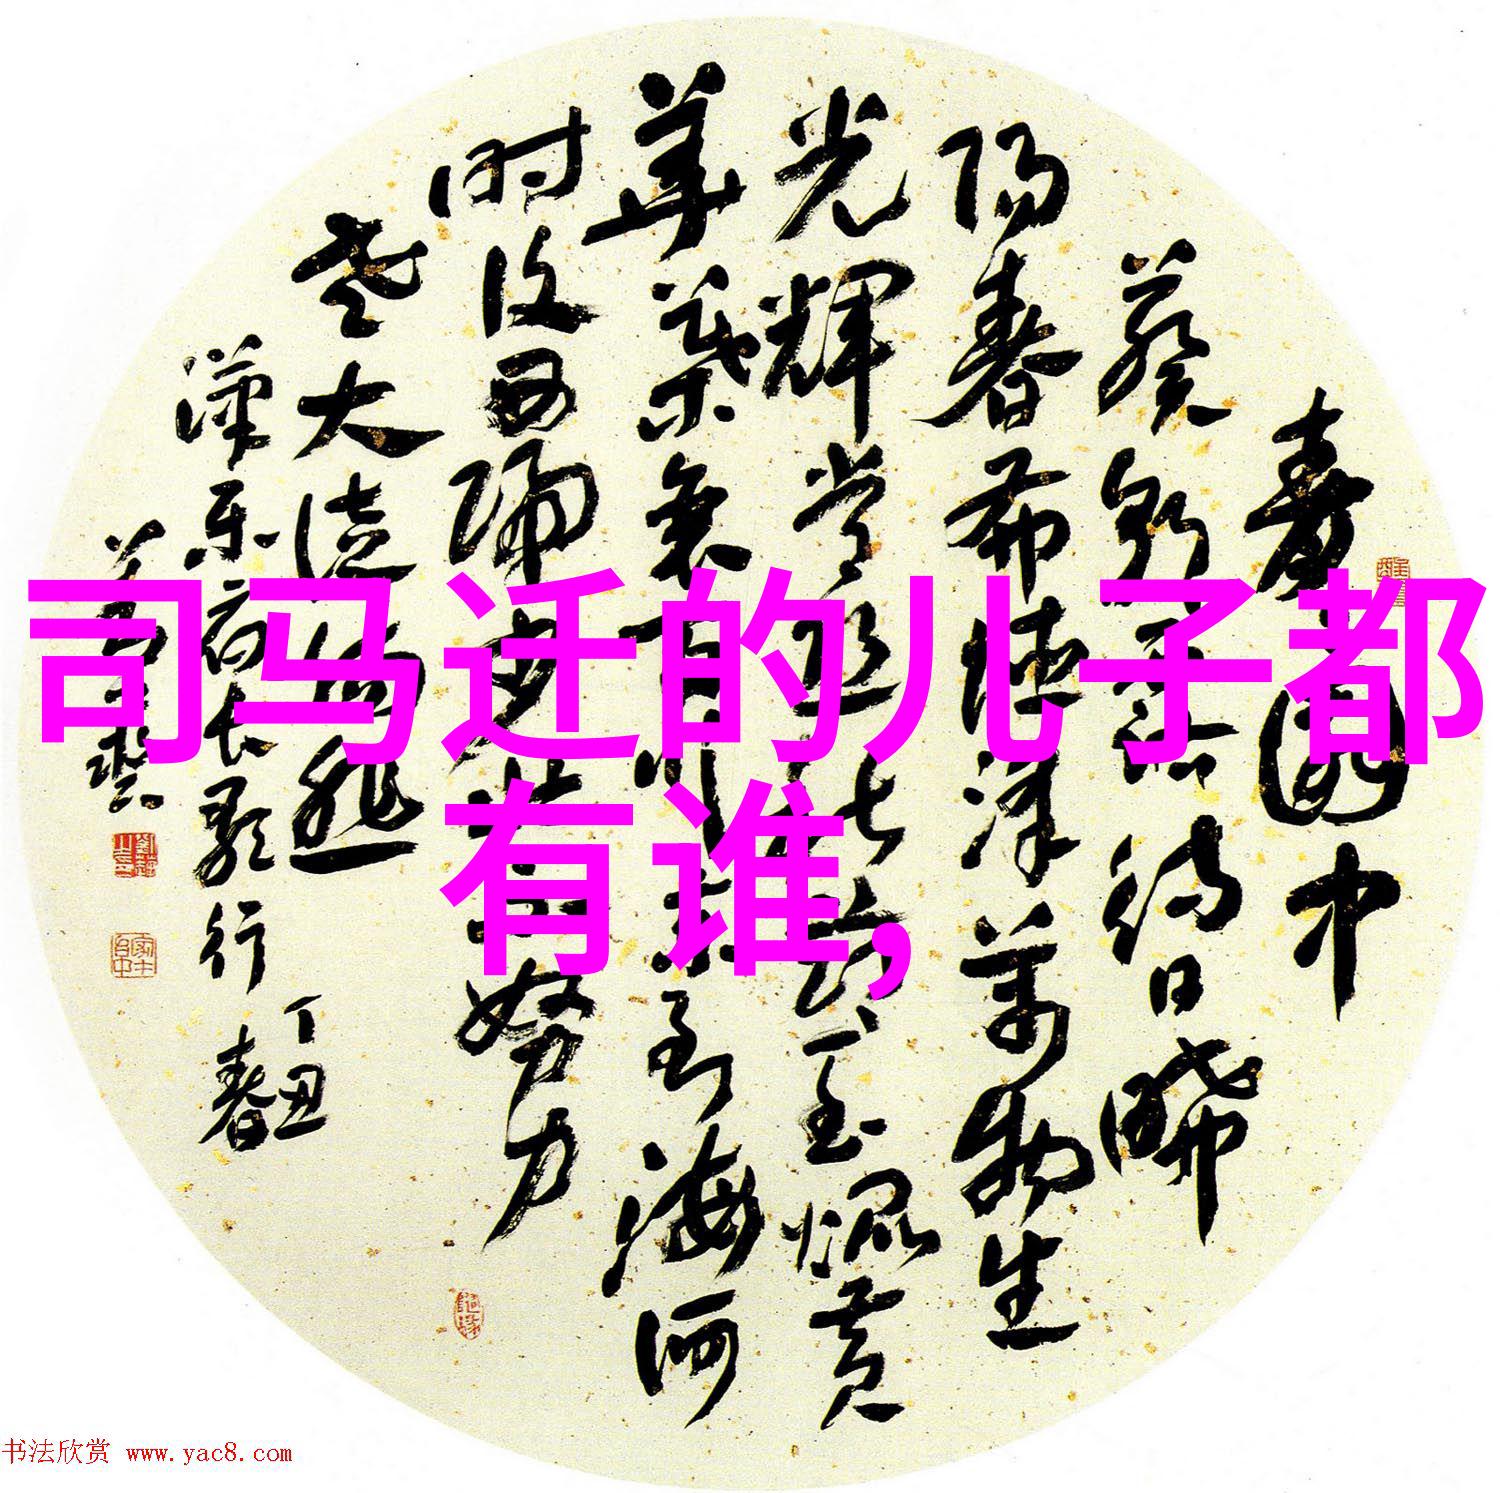 司马迁的儿子都
有谁,
青青园中
葵朝露待日晞
阳春布德泽万物生
光辉常恐秋节至焜黄
华叶衰百川东到海何
时复西归少壮不努力
老大徒伤悲
汉乐府长歌行
丁丑
春
书法欣赏 www.yac8.com